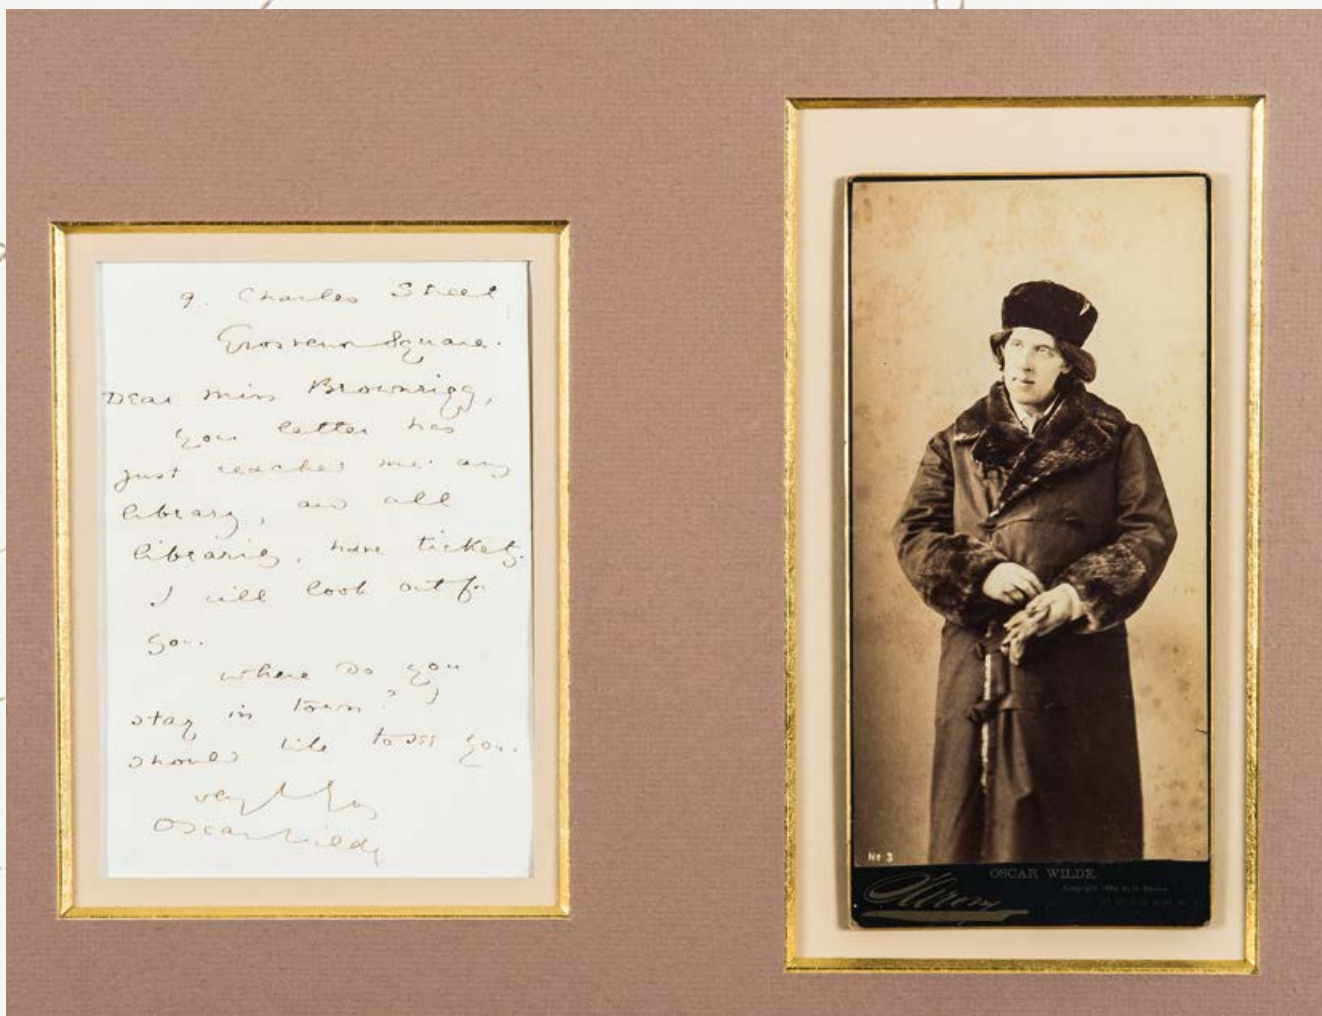 9. Charles Street
Grosvenor Square.
Dear Miss Brownrigg,
your letter has
just reached me. any
library, and all
libraries, have tickets.
I will look out for
you.
where do you
stay in town? I
should like to see you.
very truly
Oscar Wilde
No 3
OSCAR WILDE.
Sarony